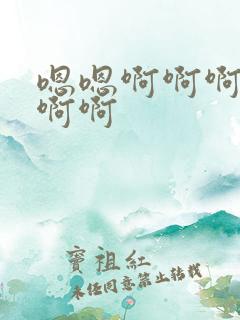 嗯嗯啊啊啊
啊啊
窦祖红
未经同意禁止转载